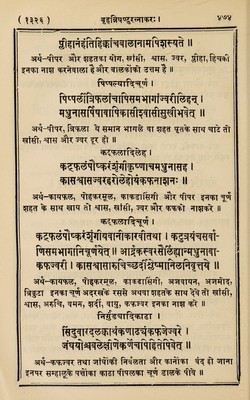 ( १३२६ ) बृहन्निघण्टुरत्नाकरः। ४७४
प्लीहानंहंतिहिक्कांचबालानामपिशस्यते ॥
अर्थ-पीपर और शहतका योग, खांसी, श्वास, ज्वर, प्लीहा, हिचकी
इनका नाश करनेवाला है और बालकोंको उत्तम है ॥
पिप्पल्यादिचूर्णं ।
पिप्पलीत्रिफलांचापिसमभागांज्वरीलिहन् ॥
मधुनासर्पिषावापिकासीश्वासीसुखीभवेत् ॥
अर्थ-पीपर, त्रिफला ये समान भागले वा शहत घृतके साथ चाटे तो
खांसी, श्वास और ज्वर दूर हो ॥
कटफलादिलेह ।
कट्फलंपौष्करंशृंगीकृष्णाचमधुनासह ॥
कासश्वासज्वरहरोलेहोयंकफनाशनः ॥
अर्थ-कायफल, पोहकरमूल, काकडासिंगी और पीपर इनका चूर्ण
शहत के साथ खाय तो श्वास, खांसी, ज्वर और कफको नाशकरे ॥
कटफलादिचूर्णं ।
कटफलंपौष्करंशृंगीयवानीकारवीतथा । कटुत्रयंचसर्वा-
णिसमभागानिचूर्णयेत् ॥ आर्द्रकस्वरसैर्लिह्यान्मधुनावा-
कफज्वरी । कासश्वासारुचिच्छर्दिश्लेष्मानिलनिवृत्तये ॥
अर्थ-कायफल, पोहकरमूल, काकडासिंगी, अजवायन, अजमोद,
त्रिकुटा इनका चूर्ण अदरखके रससे अथवा शहतके साथ देवे तो खांसी,
श्वास, अरुचि, वमन, शर्दी, वायु, कफज्वर इनका नाश करे ॥
सिंदुवारदलक्वाथंकणाढ्यंकफजेज्वरे ।
जंघयोश्चबलेक्षीणेकर्णेचपिहितेपिबेत् ॥
अर्थ-कफज्वर तथा जांघोंकी निर्बलता और कानोंका बंद हो जाना
इनपर सम्हालूके पत्तोंका काढा पीपलका चूर्ण डालके पीवे ॥